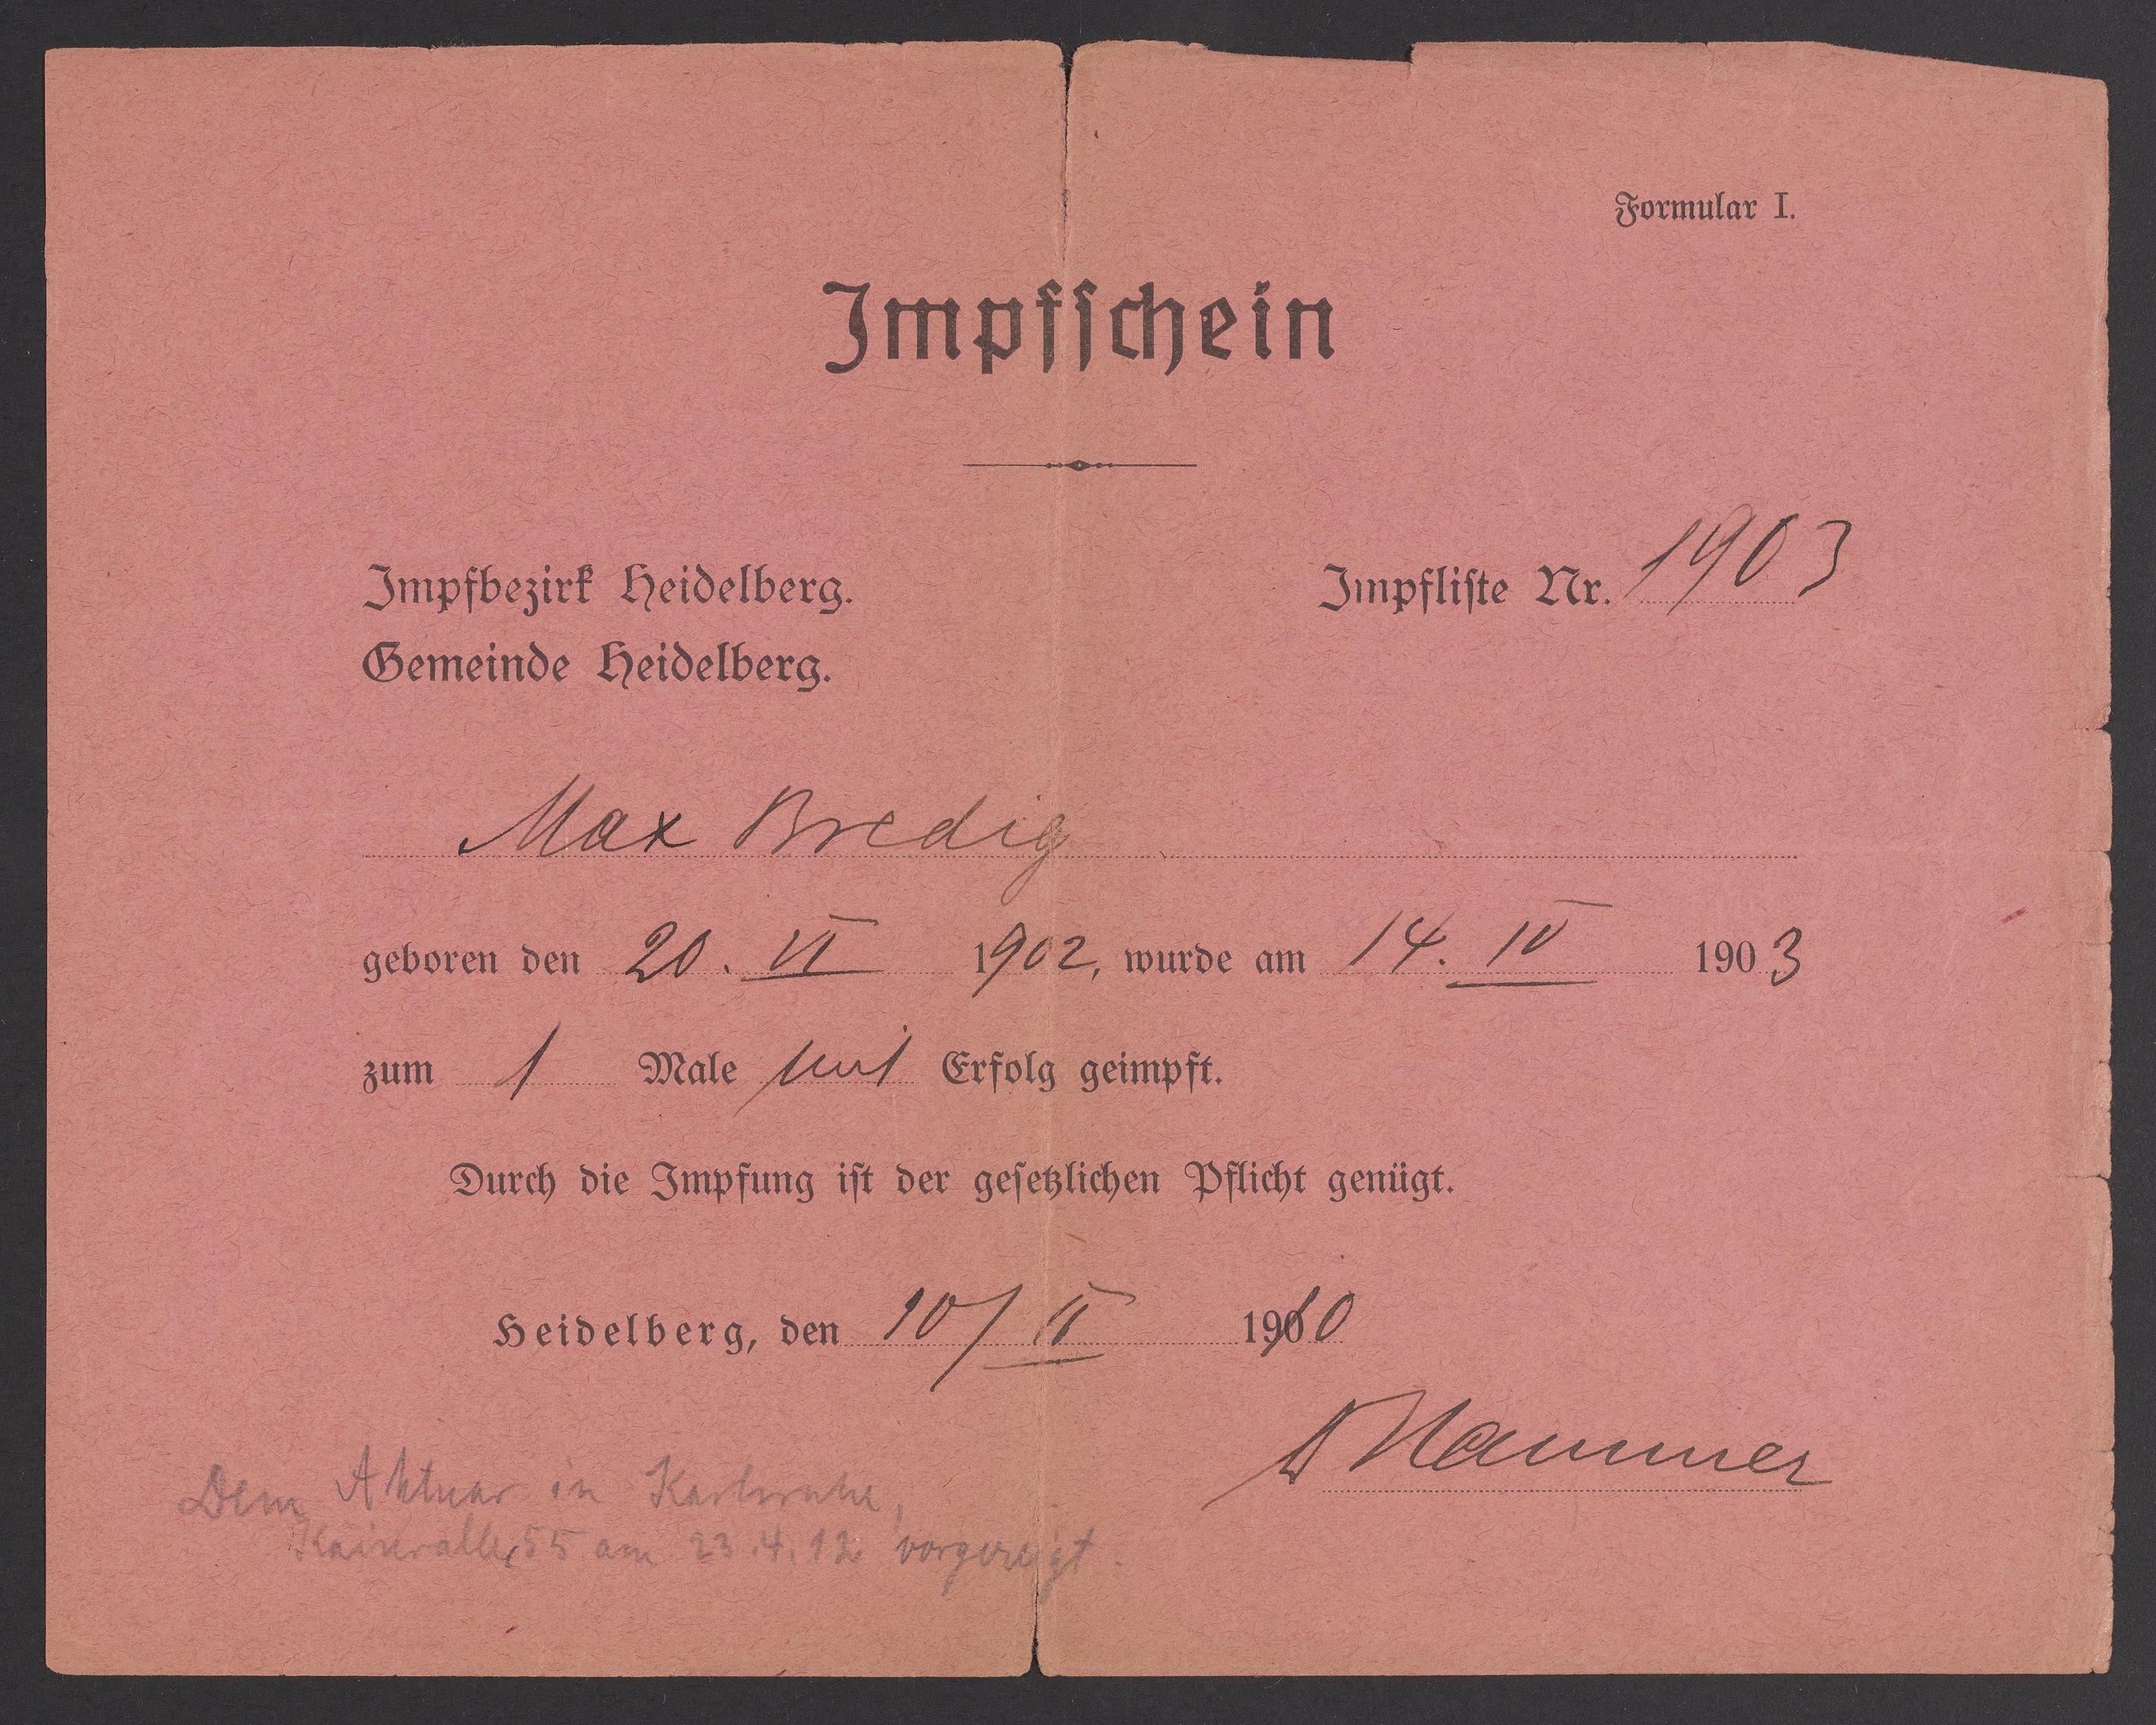 Formular I.
Impfschein
Impfbezirk Heidelberg.
Impfliste Nr. 1903
Gemeinde Heidelberg.
Max Bredig
geboren den 20. VI 1902, wurde am 14. IV 1903
zum 1 Male mit Erfolg geimpft.
Durch die Impfung ist der gesetzlichen Pflicht genügt.
Heidelberg, den 10/ II 1910
Dr Hammer
Dem Aktuar in Karlsruhe,
Kaiserallee 55 am 23.4.12 vorgezeigt.